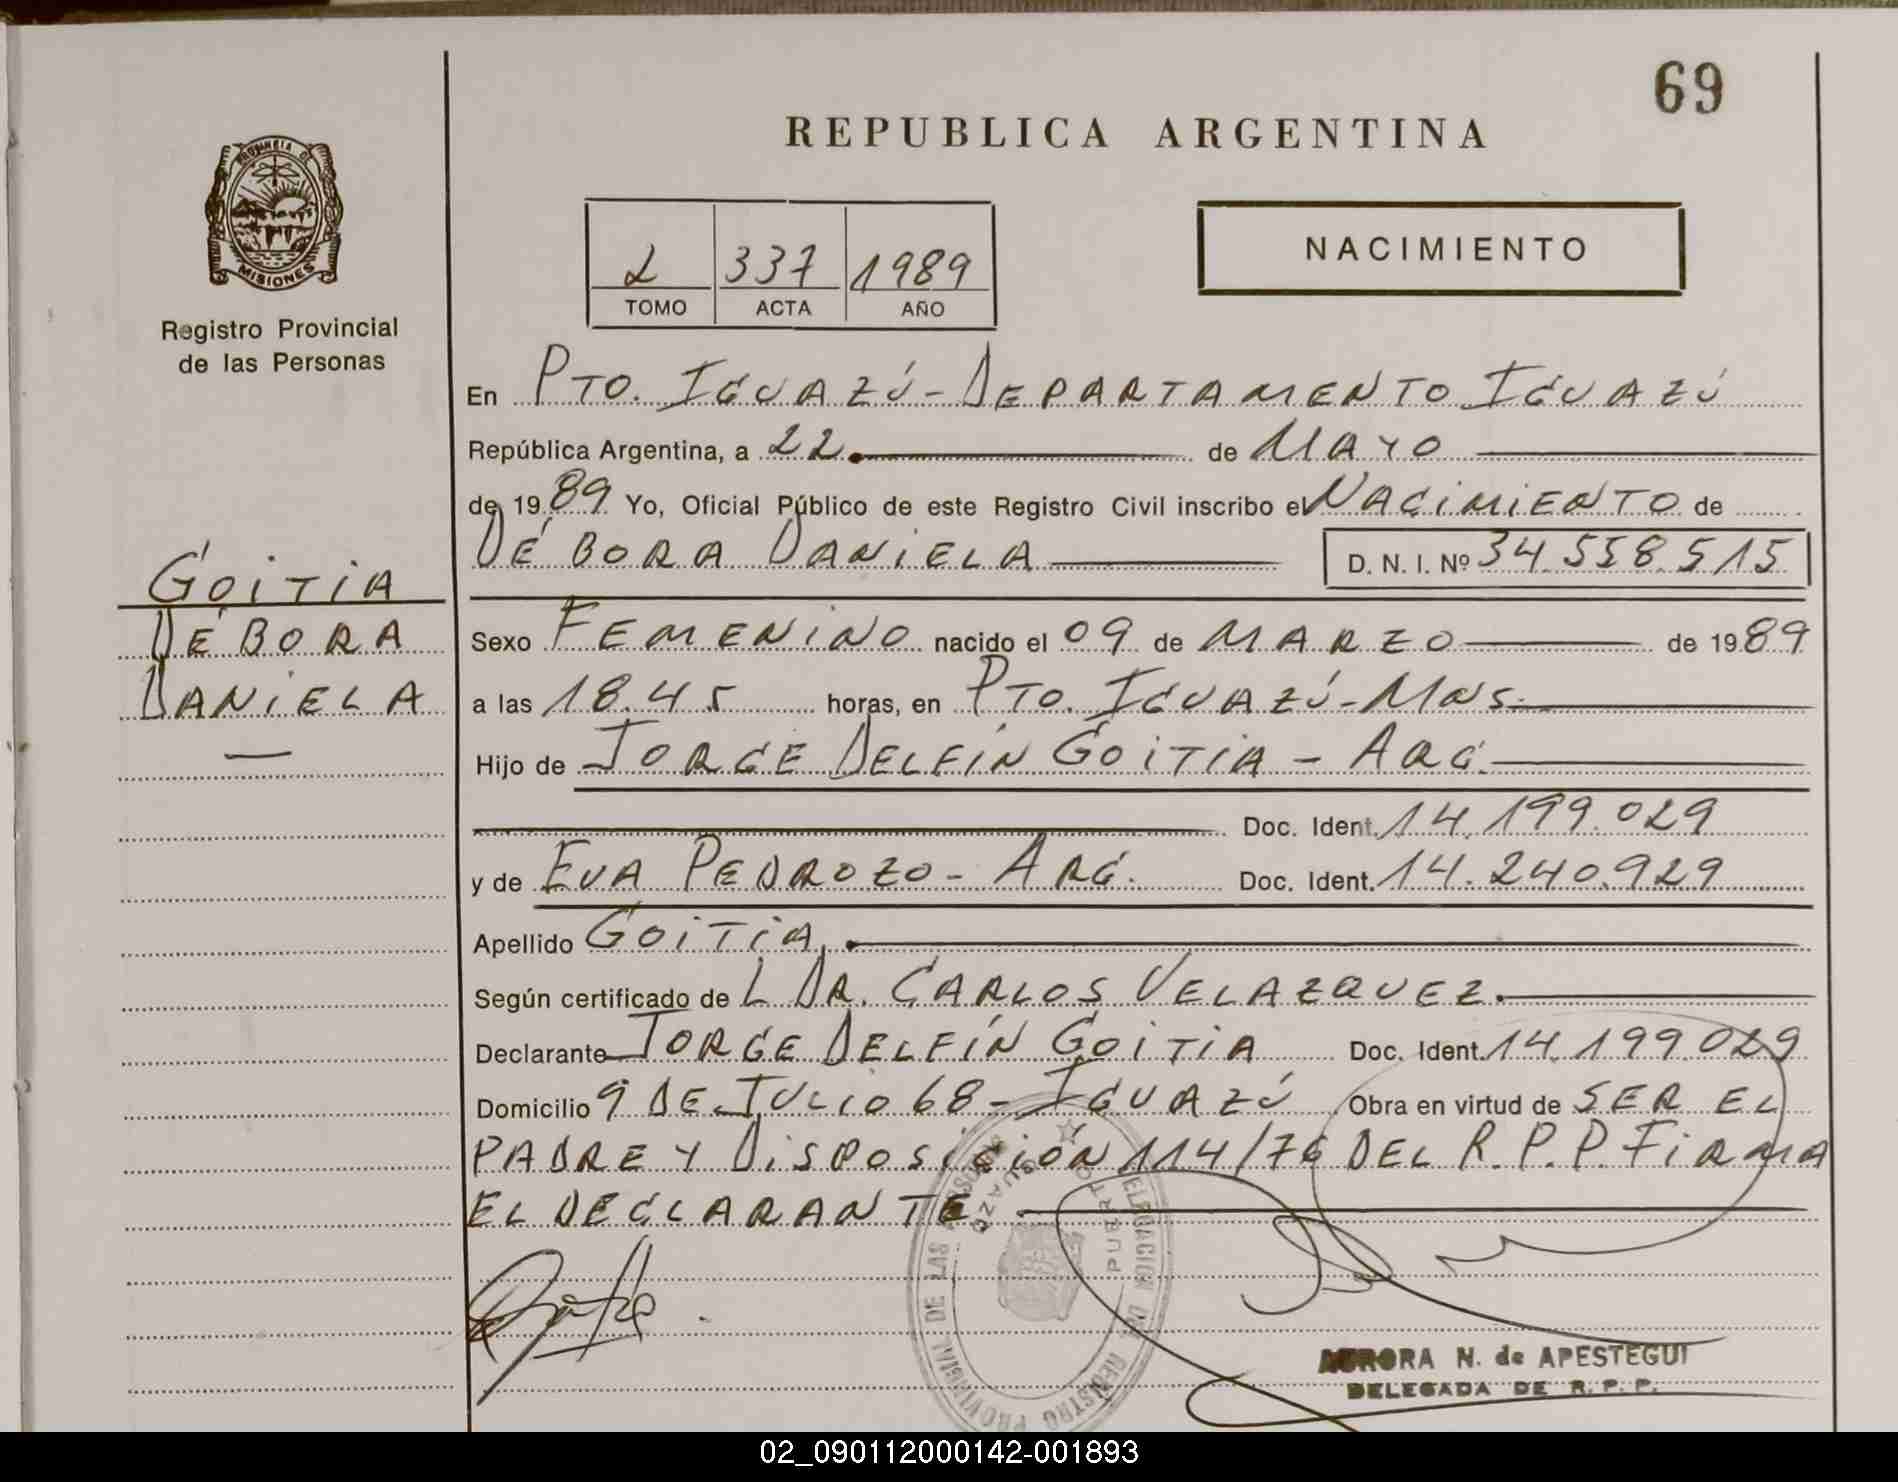 69
REPUBLICA ARGENTINA
PROVINCIA DE
MISIONES
Registro Provincial
de las Personas
2 337 1989
TOMO ACTA AÑO
NACIMIENTO
En PTO. IGUAZÚ - DEPARTAMENTO IGUAZÚ
República Argentina, a 22 de MAYO
de 1989 Yo, Oficial Público de este Registro Civil inscribo el NACIMIENTO de
DÉBORA DANIELA D. N. I. Nº 34.558.515
GOITIA
DÉBORA
DANIELA
Sexo FEMENINO nacido el 09 de MARZO de 1989
a las 18.45 horas, en PTO. IGUAZÚ - MNS.
Hijo de JORGE DELFÍN GOITIA - ARG.
Doc. Ident. 14.199.029
y de EVA PEDROZO - ARG. Doc. Ident. 14.240.929
Apellido GOITIA.
Según certificado de L DR. CARLOS VELAZQUEZ.
Declarante JORGE DELFÍN GOITIA Doc. Ident. 14.199.029
Domicilio 9 DE JULIO 68 - IGUAZÚ Obra en virtud de SER EL
PADRE Y DISPOSICIÓN 114/76 DEL R.P.P. FIRMA
EL DECLARANTE
DELEGACION DE REGISTRO PROVINCIAL DE LAS PERSONAS
PUERTO IGUAZU
AURORA N. de APESTEGUI
DELEGADA DE R.P.P.
02_090112000142-001893